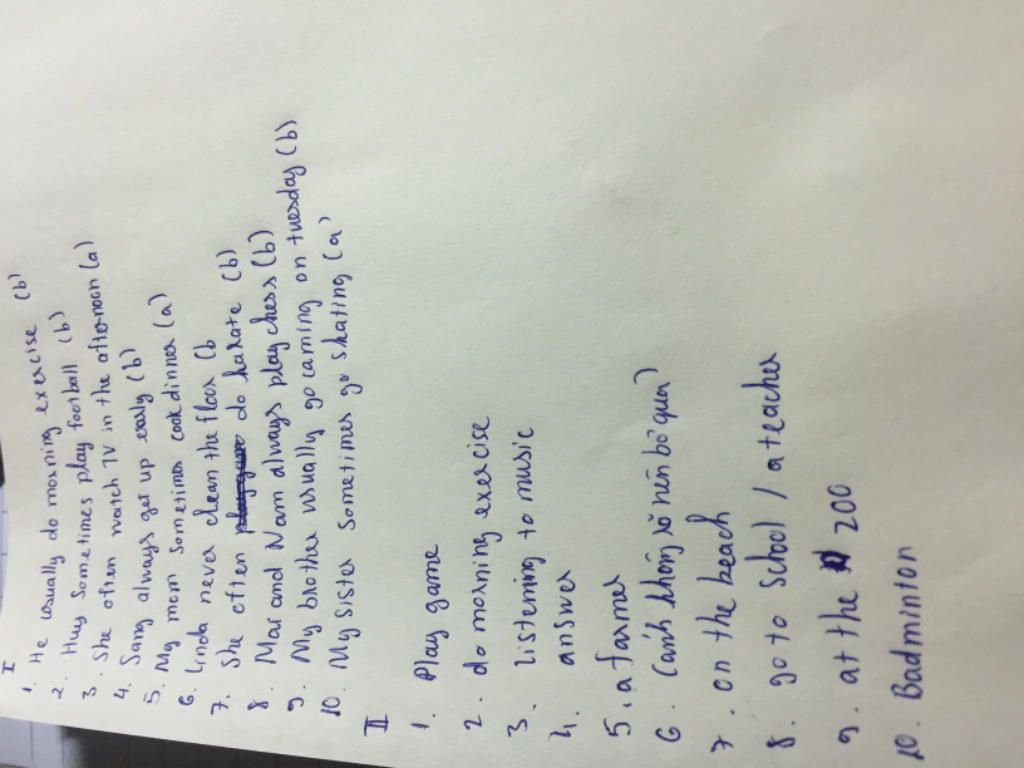 I
1. He usually do morning exercise (b)
2. Huy sometimes play football (b)
3. She often watch TV in the afternoon (a)
4. Sang always get up early (b)
5. My mom sometimes cook dinner (a)
6. Linda never clean the floor (b
7. She often do karate (b)
8. Mai and Nam always play chess (b)
9. My brother usually go caming on tuesday (b)
10. My sister sometimes go skating (a)
II
1. Play game
2. do morning exercise
3. listening to music
4. answer
5. a farmer
6. (ảnh không rõ nên bỏ qua)
7. on the beach
8. go to school / a teacher
9. at the 200
10. Badminton